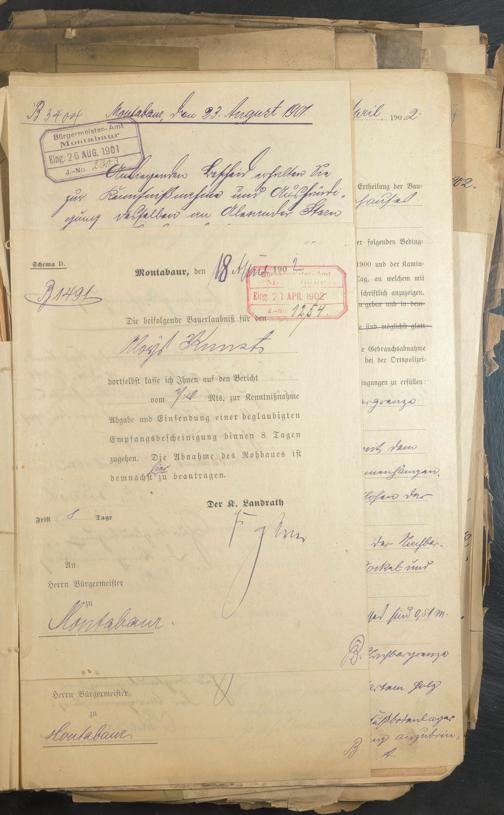 B 3404 Montabaur, den 23. August 1901
Bürgermeister-Amt
Montabaur
Eing. 26 AUG. 1901
J.-No.
erhalten Sie
zur Kenntnißnahme und Aushändi-
gung desselben an Alexander Stern
Schema D.
Montabaur, den 18 April 1902
B 1491
Bürgermeister-Amt
Eing. 21 APR. 1902
J.-No. 1254.
Die beifolgende Bauerlaubniß für den
Aloys Kunst
dortselbst lasse ich Ihnen auf den Bericht
vom Mts. zur Kenntnißnahme
Abgabe und Einsendung einer beglaubigten
Empfangsbescheinigung binnen 8 Tagen
zugehen. Die Abnahme des Rohbaues ist
demnächst zu beantragen.
Der K. Landrath
Frist 8 Tage
An
Herrn Bürgermeister
zu
Montabaur.
B.
Herrn Bürgermeister
zu
Montabaur
B
April 1902.
Ertheilung der Bau-
er folgenden Beding-
1900 und der Kamin-
Tag, an welchem mit
schriftlich anzuzeigen.
n geben und in dem
r sind möglichst glatt
e Gebrauchsabnahme
bei der Ortspolizei-
ingungen zu erfüllen:
mit dem
der Nachbar-
Sockel und
sind 0,51 m.
Nachbargrenze
Holz
Fußbodenlager
anzubrin-